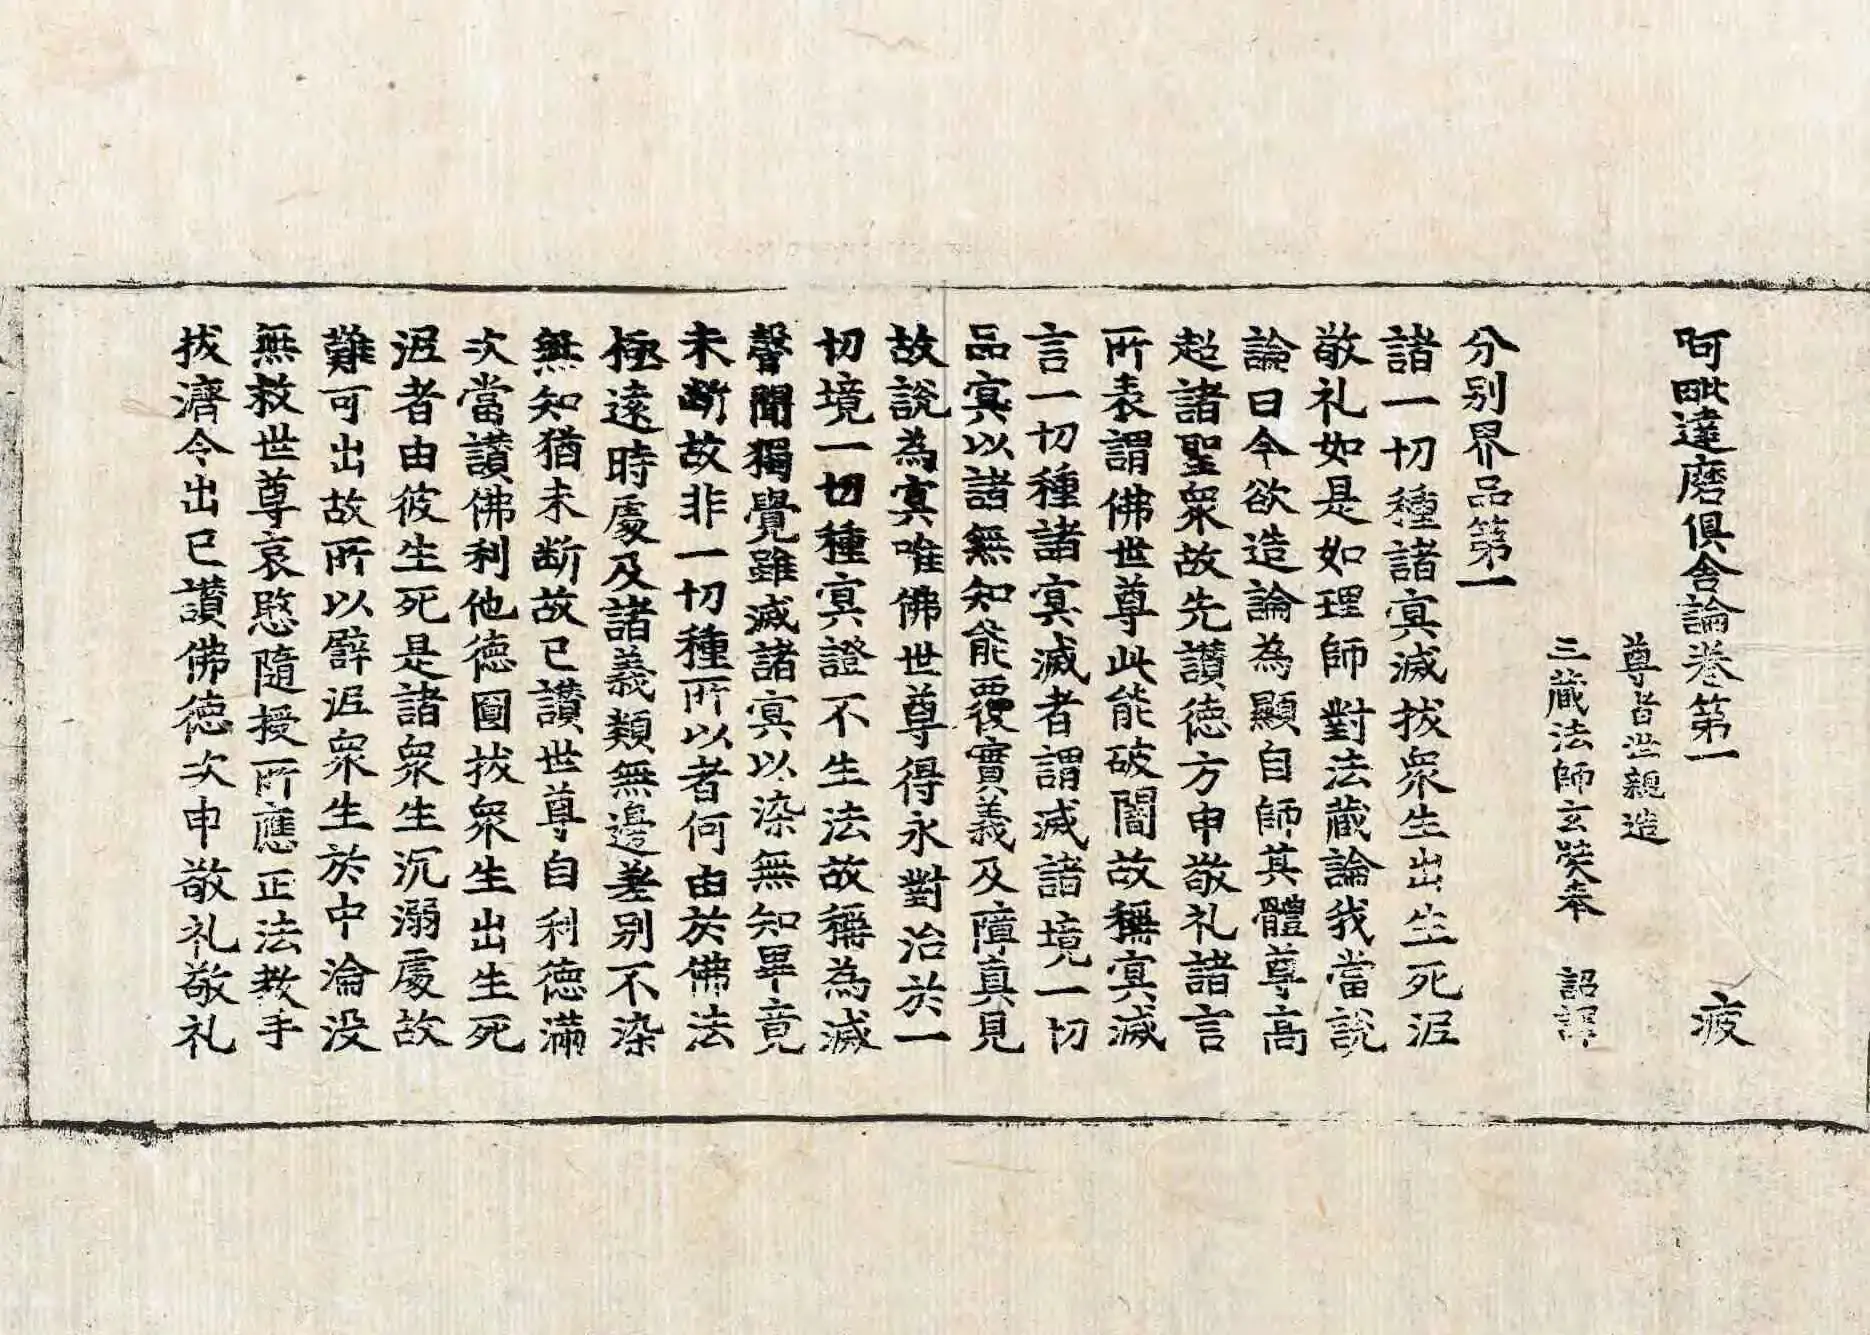 阿毗達磨俱舍論卷第一　疲
尊者世親造
三藏法師玄奘奉　詔譯
分別界品第一
諸一切種諸冥滅拔衆生出生死泥
敬礼如是如理師對法藏論我當說
論曰今欲造論為顯自師其體尊高
超諸聖衆故先讃德方申敬礼諸言
所表謂佛世尊此能破闇故稱冥滅
言一切種諸冥滅者謂滅諸境一切
品冥以諸無知能覆實義及障真見
故說為冥唯佛世尊得永對治於一
切境一切種冥證不生法故稱為滅
聲聞獨覺雖滅諸冥以染無知畢竟
未斷故非一切種所以者何由於佛法
極遠時處及諸義類無邊差別不染
無知猶未断故已讃世尊自利德滿
次當讃佛利他德圓拔衆生出生死
泥者由彼生死是諸衆生沉溺處故
難可出故所以譬泥衆生於中淪没
無救世尊哀愍隨授所應正法教手
拔濟令出已讃佛德次申敬礼敬礼